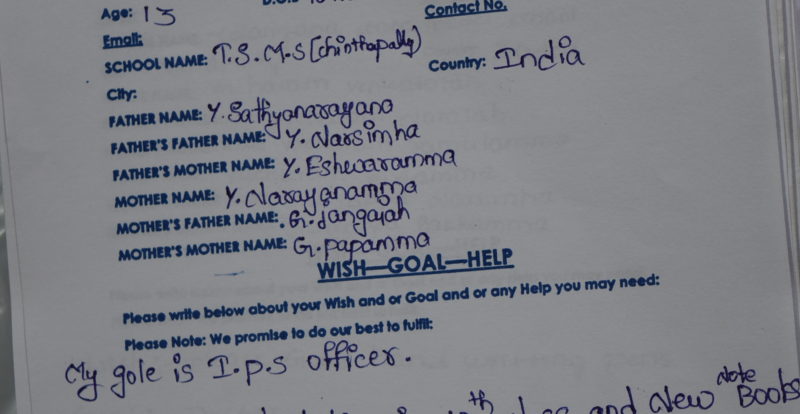 Age: 13
Contact No.
Email:
SCHOOL NAME: T.S.M.S [chinthapally)
Country: India
City:
FATHER NAME: Y. Sathyanarayana
FATHER'S FATHER NAME: Y. Narsimha
FATHER'S MOTHER NAME: Y. Eshwaramma
MOTHER NAME: Y. Narayanamma
MOTHER'S FATHER NAME: G. Jangaiah
MOTHER'S MOTHER NAME: G. papamma
WISH—GOAL—HELP
Please write below about your Wish and or Goal and or any Help you may need:
Please Note: We promise to do our best to fulfil:
My gole is I.p.s officer.
th and New Note Books